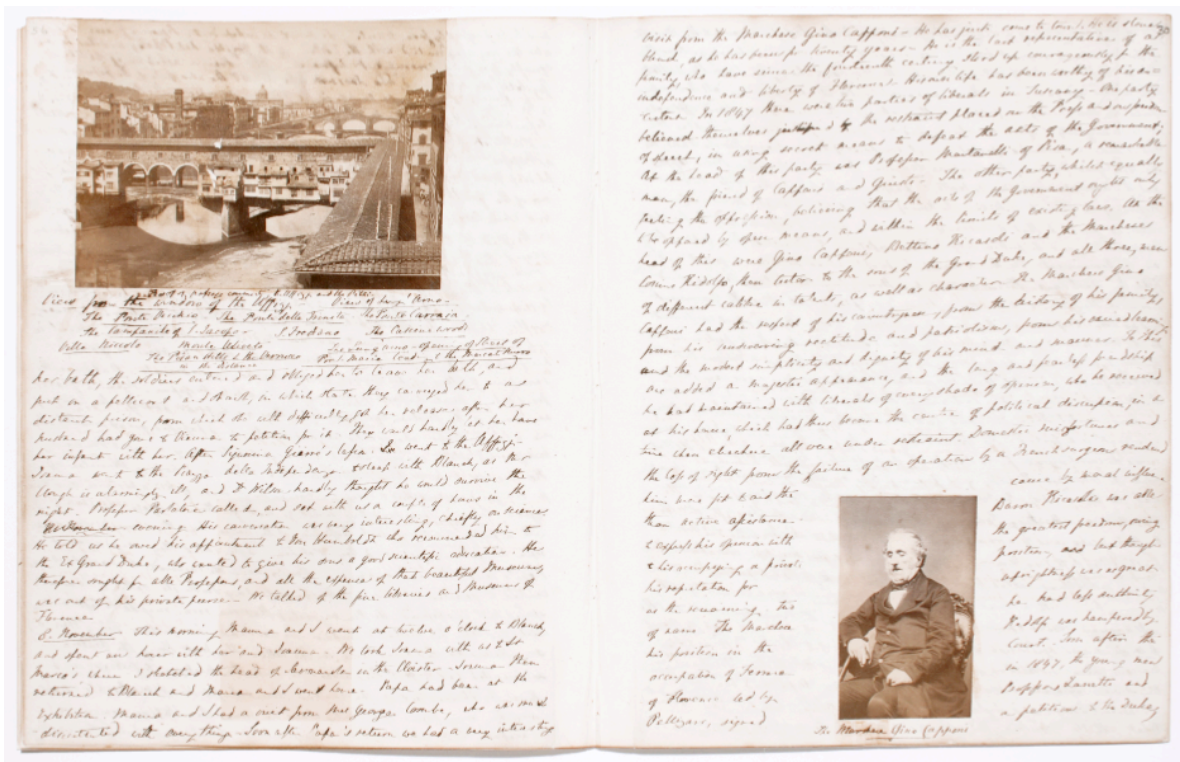 View from the window of the Uffizi
The Ponte Vecchio The Ponte della Trinità The Ponte Carraia
the Campanile of S. Jacopo S. Frediano The Cascine woods
Villa Monte Uliveto
in the distance
her bath, the soldiers entered and obliged her to leave her bath, and
put on a pellicon and shawl, in which state they conveyed her to a
distant prison, from which she with difficulty got her release after her
husband had gone to Vienna to petition for it. They would hardly let her have
her infant with her. After Signora Papa & I went to the Uffizi
Joanna went to the Piazza della Independenza to sleep with Blanch, as the
is alarmingly ill, and Dr Wilson hardly thought he would survive the
night. Professor Parlatore called, and sat with us a couple of hours in the
evening. His conversation was very interesting, chiefly on sciences
He told us he owed his appointment to Von Humboldt who recommended him to
the Ex Grand Duke, who wanted to give his sons a good scientific education. He
therefore sought for able Professors, and all the expense of that beautiful Museum
was out of his private purse. We talked of the fine libraries and Museums of
Florence
8. November This morning Mamma and I went at twelve o'clock to Blanch
and spent an hour with her and Joanna. We took Joanna with us to St
Marco's where I sketched the head of Savonarola in the Cloister. Joanna then
returned to Blanch and Mamma and I went home. Papa had been at the
Exhibition. Mamma and I had a visit from Mrs George Combe, who was much
discontented with everything. Soon after Papa's return we had a very interesting
visit from the Marchese Gino Capponi. He has just come to town. He is stone
blind, as he has been for twenty years. He is the last representative of a
family who have since the fourteenth century stood up courageously for the
independence and liberty of Florence. His own life has been worthy of his an-
cestors. In 1847 there were two parties of liberals in Tuscany. One party
believed themselves justified by the restraint placed on the Press and on freedom
of speech, in using secret means to defeat the acts of the Government;
at the head of this party was Professor Montanelli of Pisa, a remarkable
man, the friend of Capponi and Giusti. The other party, whilst equally
feeling the oppression, believing that the acts of the Government ought only
to be opposed by open means, and within the limits of existing laws. At the
head of this were Gino Capponi, Bettino Ricasoli and the Marchese
Cosimo Ridolfi, then tutor to the sons of the Grand Duke, and all three, men
of different calibre in talents, as well as character. The Marchese Gino
Capponi had the respect of his countrymen, from the history of his family,
from his unswerving rectitude and patriotism, from his
and the modest simplicity and dignity of his mind and manner. To this
was added a majestic appearance, and the long and peaceful friendship
he had maintained with liberals of every shade of opinion, who he received
at his house, which had thus become the centre of political discussion, in a
time when elsewhere all were under restraint. Domestic misfortunes and
the loss of sight from the failure of an operation by a French surgeon rendered
him more fit to aid the cause by moral influence
than active assistance. Baron Ricasoli was able
to express his opinion with the greatest freedom, owing
to his occupying a private position, and but though
his reputation for uprightness was as great
as the remaining two he had less authority
of name. The Marchese Ridolfi was hampered by
his position in the Court. Soon after the
occupation of Ferrara in 1847, the young men
of Florence led by Professors Zanetti and
signed a petition to the Duke,
The Marchese Gino Capponi